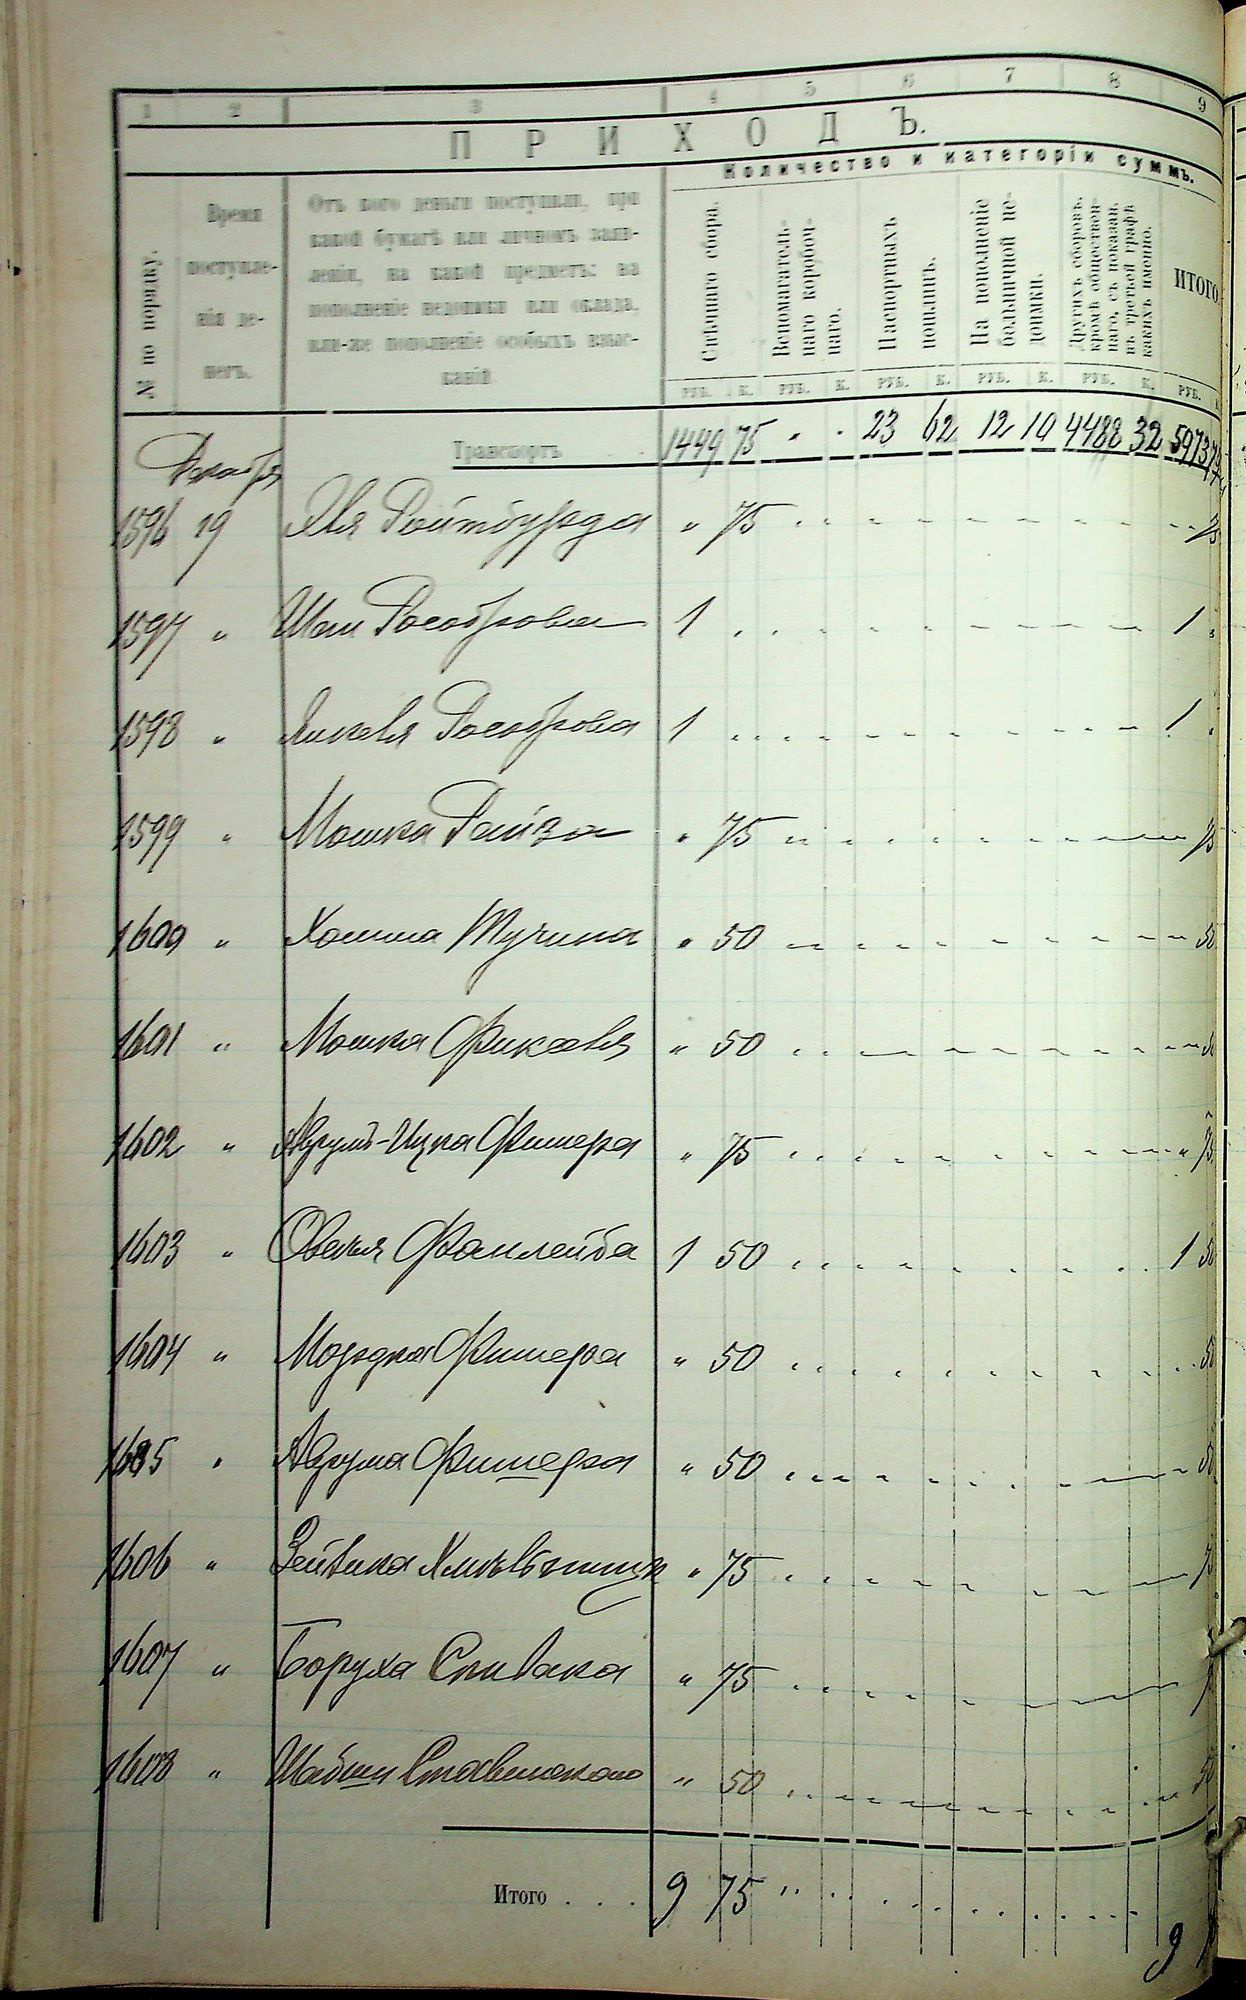 1 2 3 4 5 6 7 8 9
ПРИХОДЪ.
Количество и категоріи суммъ.
№ по порядку.
Время поступле-
нія де-
негъ.
Отъ кого деньги поступили, при
какой бумагѣ или личномъ заяв-
леніи, на какой предметъ: на
пополненіе недоимки или оклада,
или-же пополненіе особыхъ взыс-
каній
Свѣчнаго сбора.
Вспомагатель-
наго коробоч-
наго.
Паспортныхъ
пошлинъ.
На пополненіе
больничной не-
доимки.
Другихъ сборовъ,
кромѣ обществен-
наго, съ показан.
въ третьей графѣ
какихъ именно.
ИТОГО
РУБ. К. РУБ. К. РУБ. К. РУБ. К. РУБ. К. РУБ.
Транспортъ 1499 75 " " 23 62 12 10 4488 32 5973 79
Декабря
1596 19 Явя Ройтбурда " 75 75
1597 " Шаи Рособрова 1 1
1598 " Янкеля Рособрова 1 1
1599 " Мошка Райза " 75 75
1600 " Хаима Тучина " 50 50
1601 " Мошка " 50 50
1602 " Аврум-Ицка Фишера " 75 " 75
1603 " Овшия Файнлейба 1 50 1 50
1604 " Мордка Фишера " 50 50
1605 " Аврума Фишера " 50 50
1606 " Зейвика " 75 75
1607 " Боруха Спивака " 75
1608 " Шабши Ставинскаго " 50 50
Итого . . . 9 75 " 9